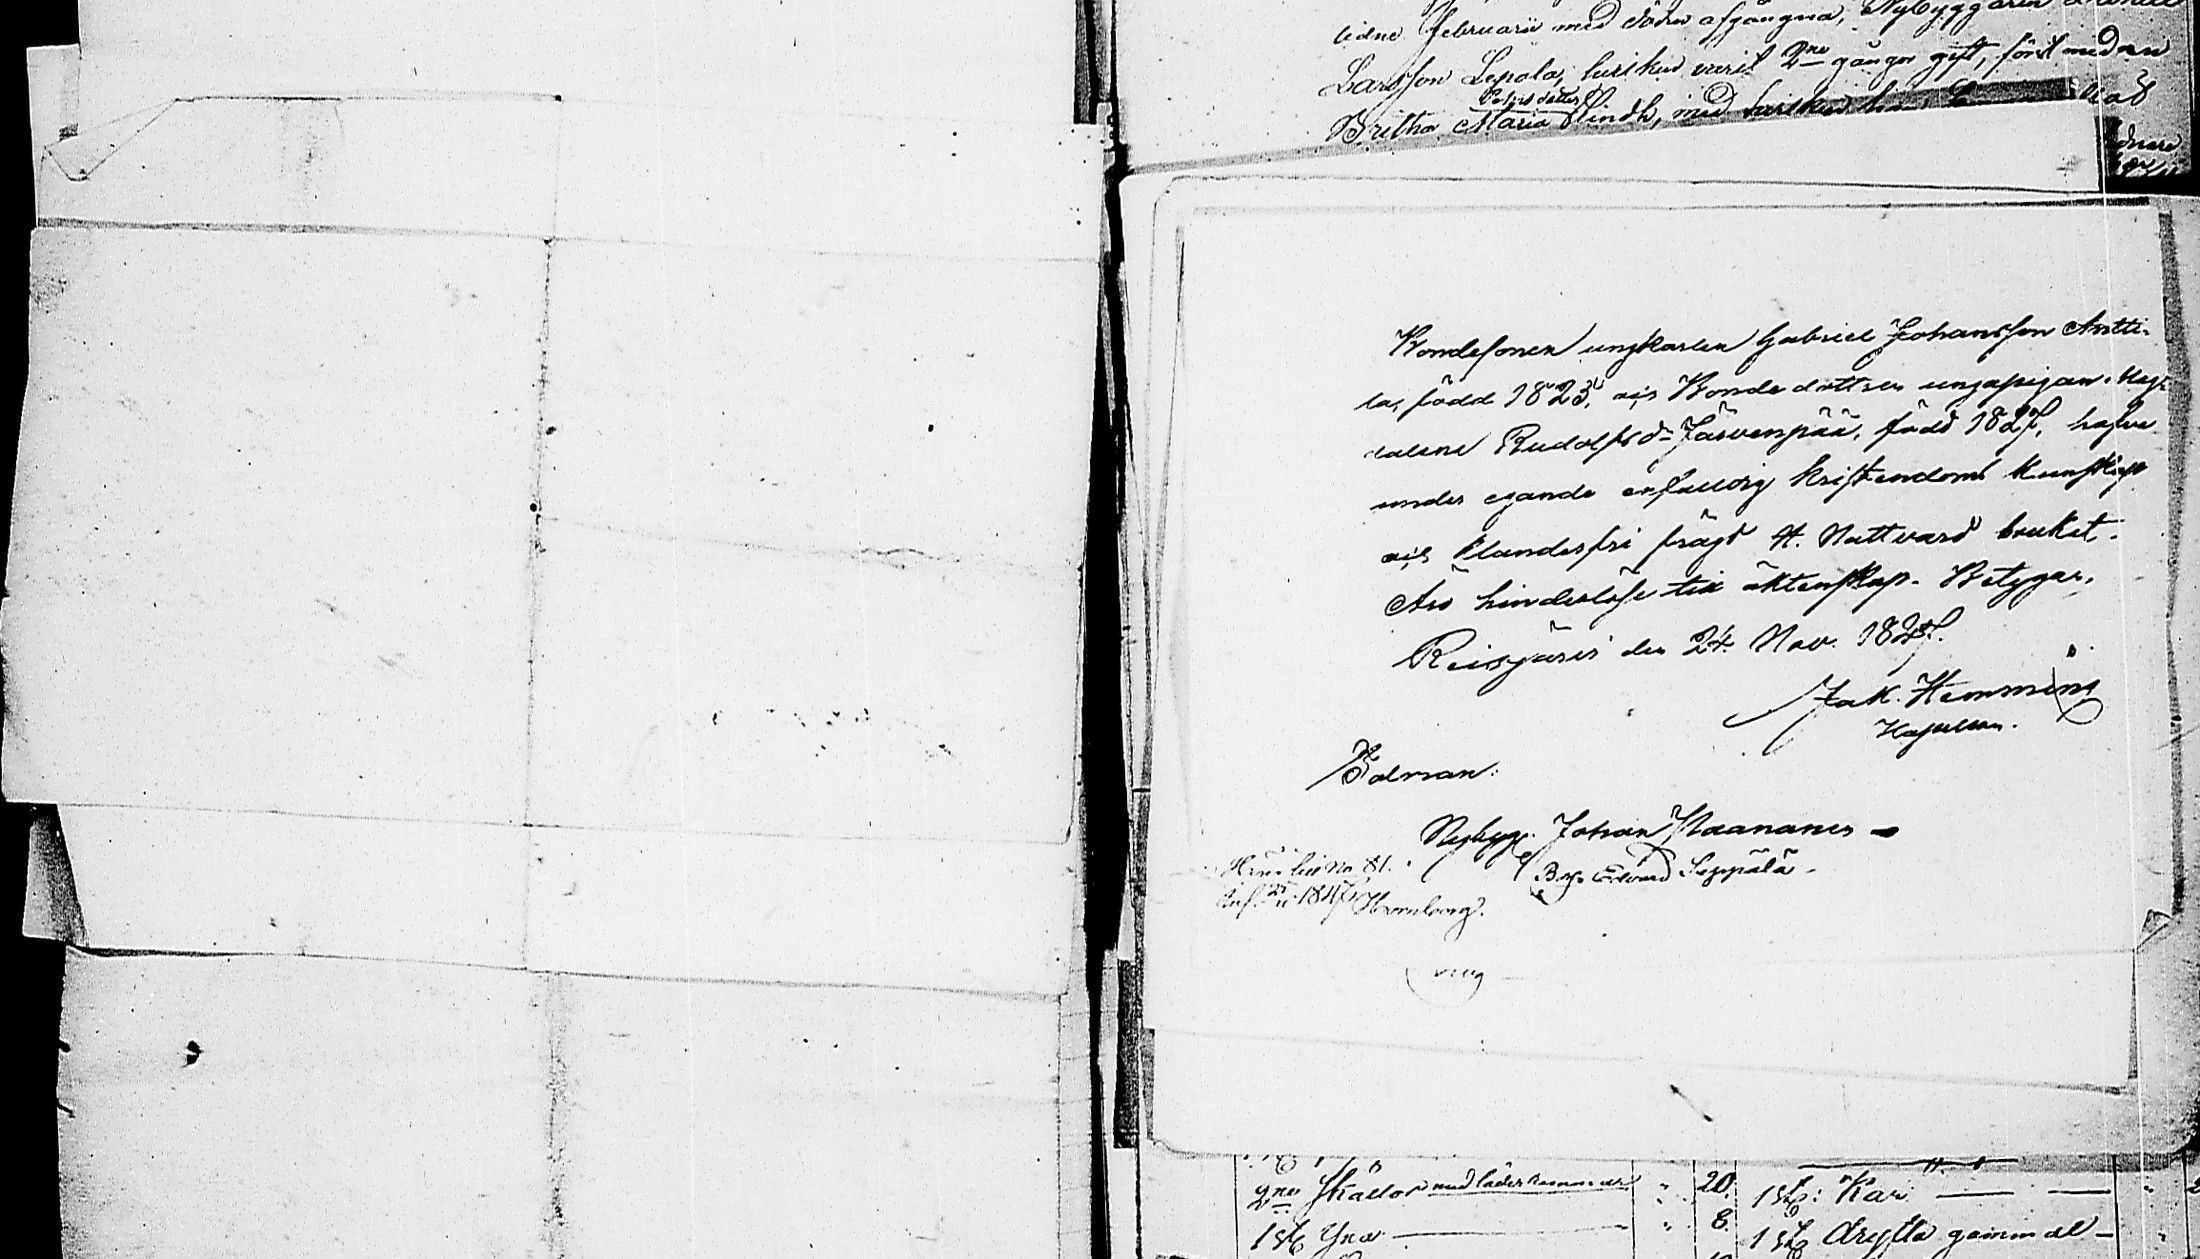 lidne februarii med döden afgångna, Nybyggaren
Larsson Lepola, hvilken varit 2ne gånger gift, först med nu
Petersdotter
Britha Maria Lindh, med hvilken han
Bondesonen ungkarlen Gabriel Johansson Antti-
la, född 1823, och Bondedottren ungapigan Mag-
dalena Rudolfsdr Järvenpää, född 1827, hafva
under egande erforderlig kristendoms kunskap
och klanderfri frägd H. Nattvard brukat.
Äro hinderlöse till äktenskap. Betygar,
Reisjärvi den 24 Nov. 1847.
Jak. Hemming
Kapellan.
Edman:
Nybygg. Johan Paananen
Edvard Seppälä
No 81.
1847 Hornborg.
2ne med läder
20.
1 st: Kar
1 st
8.
1 st gammal